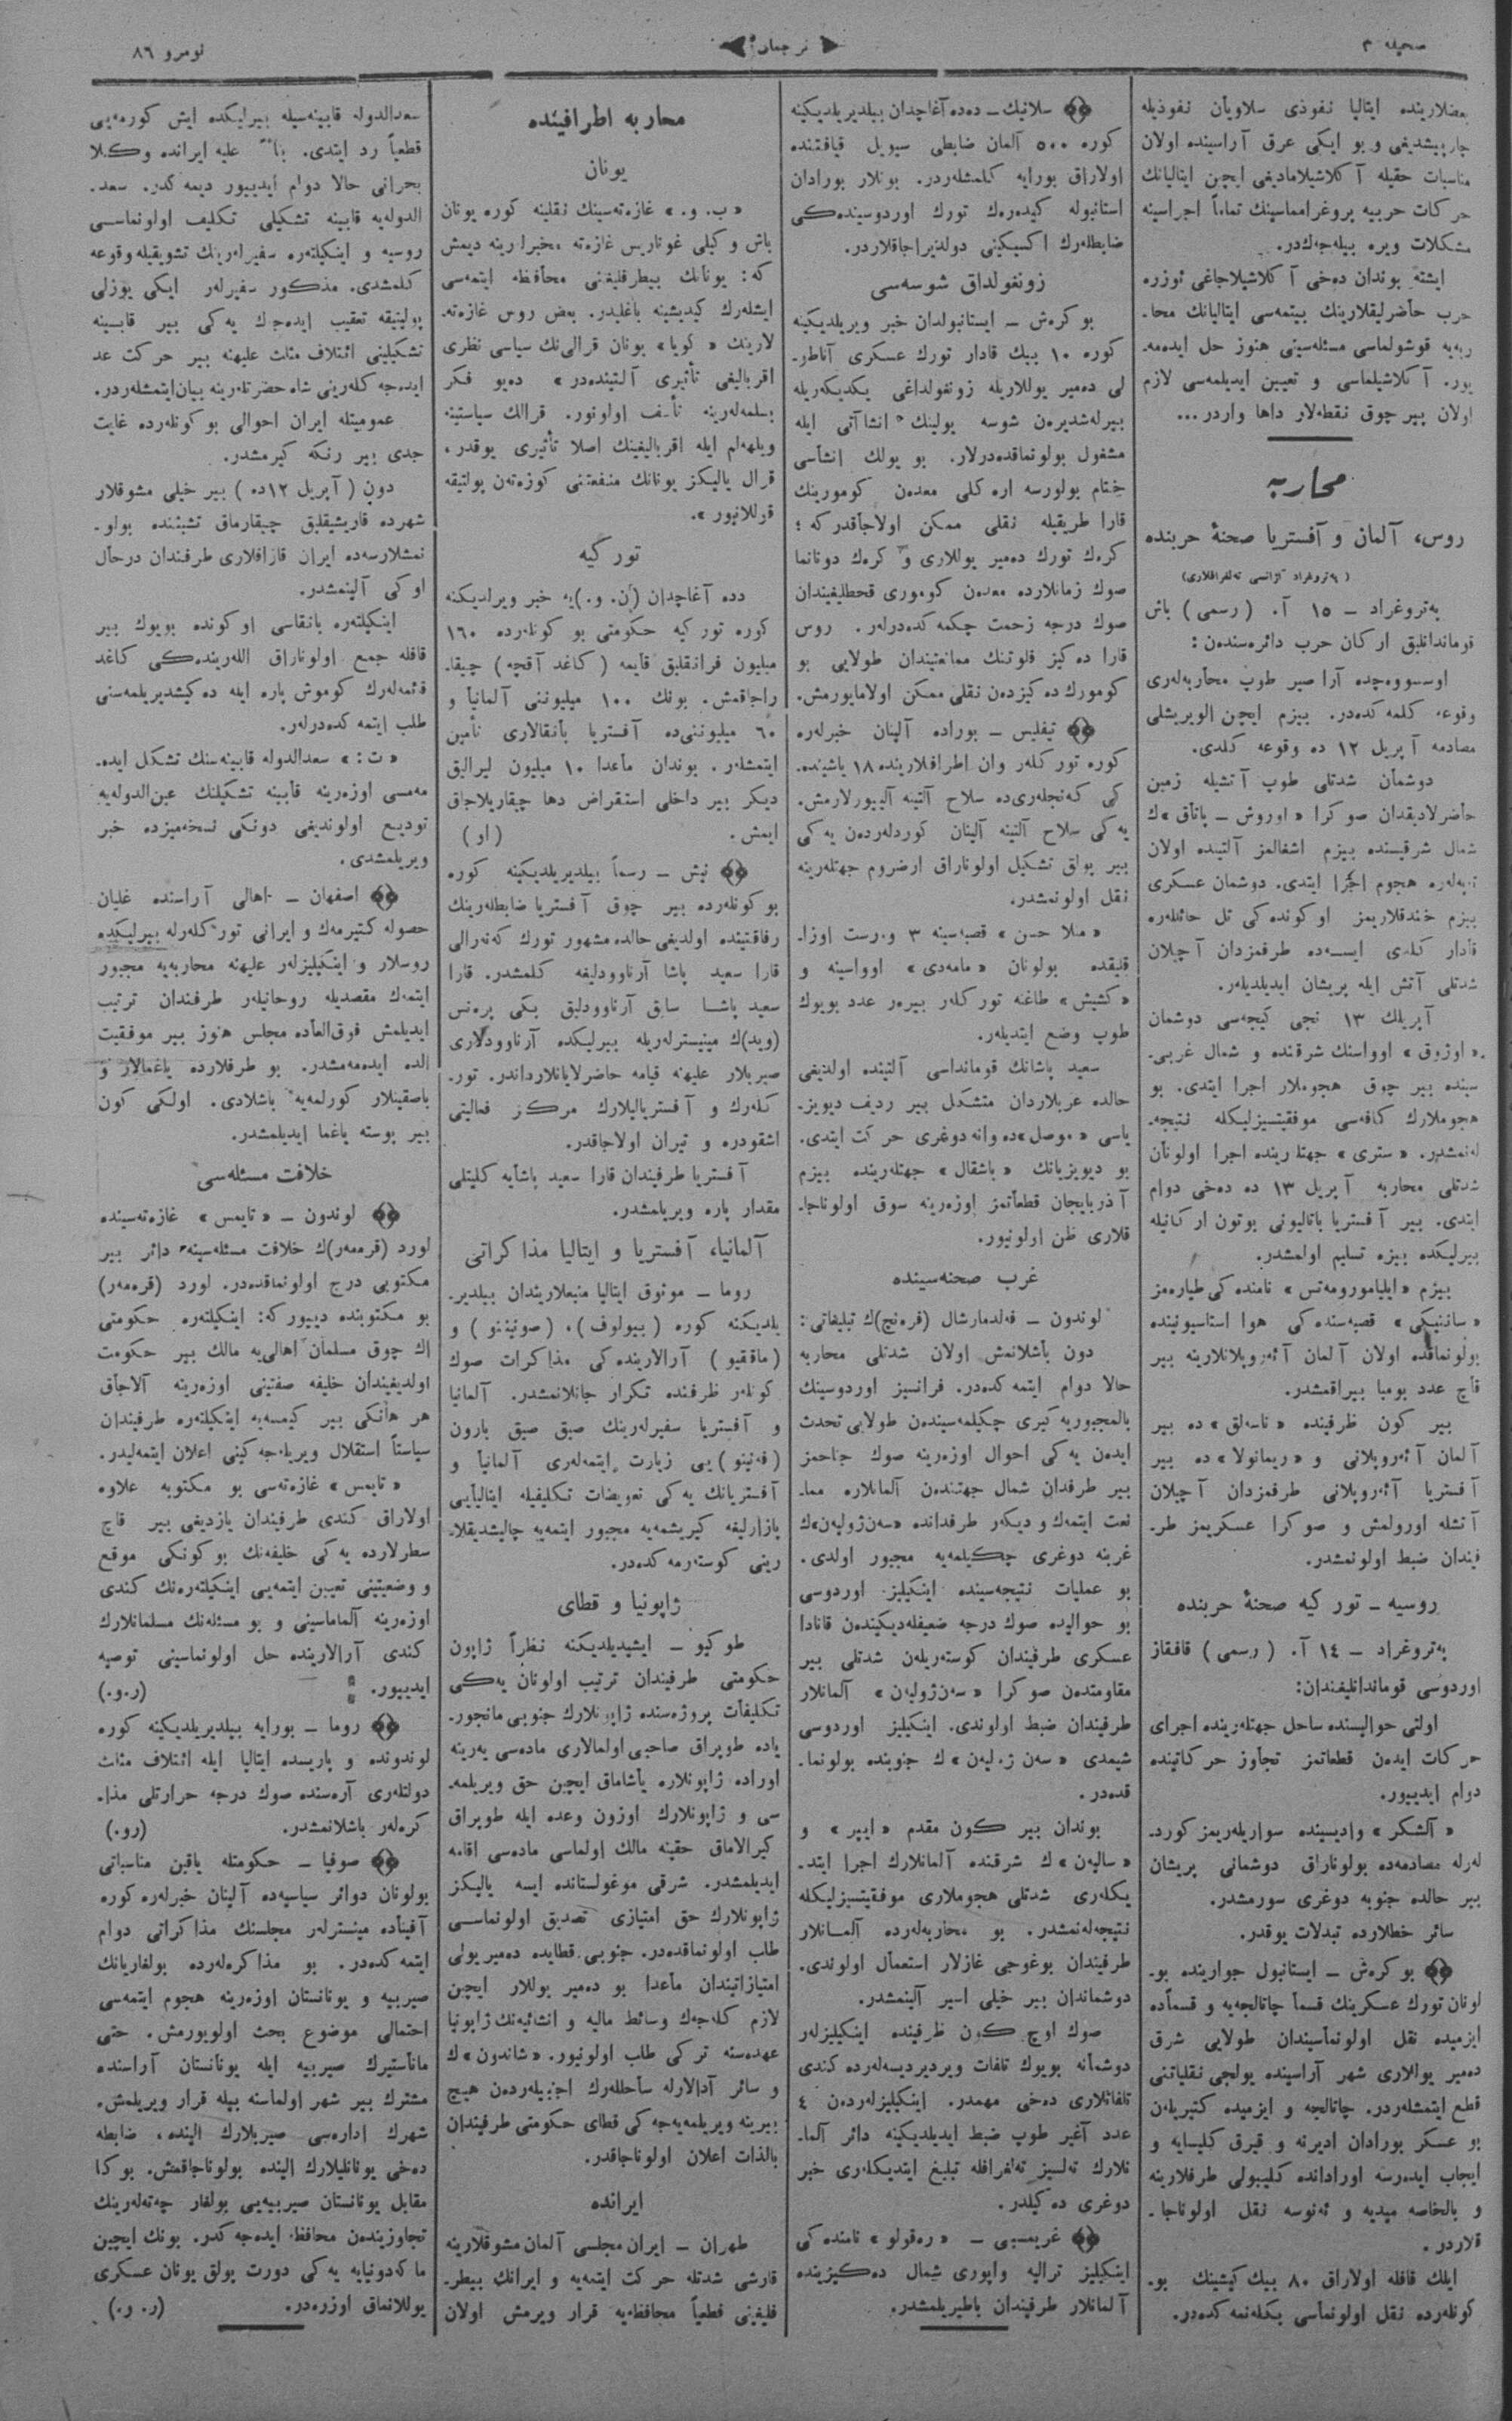 صحیفه ٣
ترجمان
نومرو ٨٦
بعضلارینده ایتالیا نفوذی سلاویان نفوذیله
چارپیشدیغی و بو ایکی عرق آراسینده اولان
مناسبات حقیله آکلاشیلامادیغی ایچن ایتالیانك
حرکات حربیه پروغرامماسینك تماماً اجراسینه
مشکلات ویره بیله‌جه‌کدر.
ایشته بوندان ده‌خی آکلاشیلاجاغی ئوزره
حرب حاضرلیقلارینك بیتمه‌سی ایتالیانك محا-
ربه‌یه قوشولماسی مسئله‌سینی هنوز حل ایده‌مه-
یور. آکلاشیلماسی و تعیین ایدیلمه‌سی لازم
اولان بیر چوق نقطه‌لار داها واردر...
محاربه
روس، آلمان و آفستریا صحنهٔ حربنده
(پەتروغراد آژانسی تەلغرافلاری)
پەتروغراد ـ ١٥ آ. (رسمی) باش
قوماندانلیق ارکان حرب دائره‌سندەن:
اوسسووه‌چده آرا صیر طوپ محاربه‌لەری
وقوعه کلمه‌کده‌در. بیزم ایچن الویریشلی
مصادمه آپریل ١٢ ده وقوعه کلدی.
دوشمان شدتلی طوپ آتشیله زمین
حاضرلادیقدان صوکرا «اوروش ـ پاتاق»ك
شمال شرقیسنده بیزم اشغالمز آلتینده اولان
تپه‌لەره هجوم اجرا ایتدی. دوشمان عسکری
بیزم خندقلاریمز اوکونده‌کی تل حائله‌ره
قادار کلدی ایسه‌ده طرفمزدان آچیلان
شدتلی آتش ایله پریشان ایدیلدیلەر.
آپریلك ١٣ نجی کیجه‌سی دوشمان
«اوزوق» اوواسنك شرقنده و شمال غربی-
سینده بیر چوق هجوملار اجرا ایتدی. بو
هجوملارك کافه‌سی موفقیتسیزلیکله نتیجه-
لەنمشدر. «ستری» جهتلرینده اجرا اولونان
شدتلی محاربه آپریل ١٣ ده ده‌خی دوام
ایتدی. بیر آفستریا باتالیونی بوتون ارکانیله
بیرلیکده بیزه تسلیم اولمشدر.
بیزم «ایلیامورومه‌تس» نامنده‌کی طیاره‌مز
قصبه‌سنده‌کی هوا استاسیونینده
بولونماقده اولان آلمان آئەروپلانلارینه بیر
قاچ عدد بومبا بیراقمشدر.
بیر کون ظرفینده «ناسه‌لق»ده بیر
آلمان آئەروپلانی و «ریمانولا»ده بیر
آفستریا آئەروپلانی طرفمزدان آچیلان
آتشله اورولمش و صوکرا عسکریمز طر-
فیندان ضبط اولونمشدر.
روسیه ـ تورکیه صحنهٔ حربنده
پەتروغراد ـ ١٤ آ. (رسمی) قافقاز
اوردوسی قوماندانلیغندان:
اولتی حوالیسنده ساحل جهتلەرینده اجرای
حرکات ایدەن قطعاتمز تجاوز حرکاتینده
دوام ایدییور.
«آلشکر» وادیسینده سواریلەریمز کورد-
لەرله مصادمه‌ده بولوناراق دوشمانی پریشان
بیر حالده جنوبه دوغری سورمشدر.
سائر خطلارده تبدلات یوقدر.
بوکرەش ـ ایستانبول جوارینده بو-
لونان تورك عسکرینك قسماً چاتالجه‌یه و قسماًده
ایزمیده نقل اولونماسیندان طولایی شرق
دەمیر یوللاری شهر آراسینده یولجی نقلیاتنی
قطع ایتمشلەردر. چاتالجه و ایزمیده کتیریلەن
بو عسکر بورادان ادیرنه و قیرق کلیسایه و
ایجاب ایدەرسه اورادانده کلیبولی طرفلارینه
و بالخاصه میدیه و ئەنوسه نقل اولوناجا-
قلاردر.
ایلك قافله اولاراق ٨٠ بیك کیشینك بو-
کونلەرده نقل اولونماسی بکلەنمه‌کده‌در.
سلانیك ـ دەدەآغاچدان بیلدیریلدیکینه
کوره ٥٠٠ آلمان ضابطی سیویل قیافتنده
اولاراق بورایه کلمشلەردر. بونلار بورادان
استانبوله کیدەرەك تورك اوردوسینده‌کی
ضابطلەرك اکسیکینی دولدیراجاقلاردر.
زونغولداق شوسه‌سی
بوکرەش ـ ایستانبولدان خبر ویریلدیکینه
کوره ١٠ بیك قادار تورك عسکری آناطو-
لی دەمیر یوللاریله زونغولداغی یکدیکەریله
بیرلەشدیرەن شوسه یولینك انشاآتی ایله
مشغول بولونماقده‌درلار. بو یولك انشأسی
ختام بولورسه ارەکلی معدەن کومورینك
قارا طریقیله نقلی ممکن اولاجاقدر که؛
کرەك تورك دەمیر یوللاری و کرەك دونانما
صوك زمانلارده معدەن کوموری قحطلیغیندان
صوك درجه زحمت چکمه‌کده‌درلەر. روس
قارا دەکیز فلوتنك ممانعتیندان طولایی بو
کومورك دەکیزدەن نقلی ممکن اولامایورمش.
تیفلیس ـ بوراده آلینان خبرلەره
کوره تورکلەر وان اطرافلارینده ١٨ یاشینده-
کی کەنجلەری‌ده سلاح آلتینه آلییورلارمش.
یه‌کی سلاح آلتینه آلینان کوردلەردەن یه‌کی
بیر پولق تشکیل اولوناراق ارضروم جهتلەرینه
نقل اولونمشدر.
«ملا حسن» قصبه‌سینه ٣ ویرست اوزا-
قلیقده بولونان «مامەدی» اوواسینه و
«کشیش» طاغنه تورکلەر بیرەر عدد بویوك
طوپ وضع ایتدیلەر.
سعید پاشانك قوماندا‌سی آلتینده اولدیغی
حالده عربلاردان متشکل بیر ردیف دیویز-
یاسی «موصل»ده وانه دوغری حرکت ایتدی.
بو دیویزیانك «باشقال» جهتلەرینده بیزم
آذربایجان قطعاتمز اوزەرینه سوق اولوناجا-
قلاری ظن اولونیور.
غرب صحنه‌سینده
لوندون ـ فەلدمارشال (فرەنچ)ك تبلیغاتی:
دون باشلانمش اولان شدتلی محاربه
حالا دوام ایتمه‌کده‌در. فرانسیز اوردوسینك
بالمجبوریه کیری چکیلمه‌سیندەن طولایی تحدث
ایدەن یه‌کی احوال اوزەرینه صوك جناحمز
بیر طرفدان شمال جهتندەن آلمانلاره مما-
نعت ایتمەك و دیکەر طرفدانده «سەن‌ژولیەن»ك
غربنه دوغری چکیلمه‌یه مجبور اولدی.
بو عملیات نتیجه‌سینده اینکیلیز اوردوسی
بو حوالیده صوك درجه ضعیفلەدیکیندەن قانادا
عسکری طرفیندان کوستەریلەن شدتلی بیر
مقاومتدەن صوکرا «سەن‌ژولیەن» آلمانلار
طرفیندان ضبط اولوندی. اینکیلیز اوردوسی
شیمدی «سەن ژولیەن»ك جنوبنده بولونما-
قده‌در.
بوندان بیر کون مقدم «ایپر» و
«سالیەن»ك شرقنده آلمانلارك اجرا ایتد-
یکلەری شدتلی هجوملاری موفقیتسیزلیکله
نتیجه‌لەنمشدر. بو محاربه‌لەرده آلمانلار
طرفیندان بوغوجی غازلار استعمال اولوندی.
دوشماندان بیر خیلی اسیر آلینمشدر.
صوك اوچ کون ظرفینده اینکیلیزلەر
دوشمانه بویوك تلفات ویردیردیسه‌لەرده کندی
تلفاتلاری دەخی مهمدر. اینکیلیزلەردەن ٤
عدد آغیر طوپ ضبط ایدیلدیکینه دائر آلما-
نلارك تەلسیز تەلغرافله تبلیغ ایتدیکلەری خبر
دوغری دەکیلدر.
غریمسبی ـ «رەقولو» نامنده‌کی
اینکیلیز ترالیه واپوری شمال دەکیزینده
آلمانلار طرفیندان باطیریلمشدر.
محاربه اطرافینده
یونان
«ب. و.» غازەته‌سینك نقلینه کوره یونان
باش وکیلی غوناریس غازەته مخبرلرینه دیمش
که: یونانك بیطرفلیغنی محافظه ایتمه‌سی
ایشلەرك کیدیشینه باغلیدر. بعض روس غازەته-
لارینك «کویا» یونان قرالی‌نك سیاسی نظری
اقربالیغی تأثیری آلتینده‌در» دەیو فکر
بسلمه‌لەرینه تأسف اولونور. قرالك سیاستینه
ویلهەلم ایله اقربالیغینك اصلا تأثیری یوقدر،
قرال یالیکز یونانك منفعتنی کوزەتەن پولتیقه
قوللانیور».
تورکیه
دده آغاچدان (ن. و.)یه خبر ویرلدیکنه
کوره تورکیه حکومتی بو کونلەرده ١٦٠
میلیون فرانقلیق قائمه (کاغد آقچه) چیقا-
راجاقمش. بونك ١٠٠ میلیوننی آلمانیا و
٦٠ میلیوننی‌ده آفستریا بانقالاری تأمین
ایتمشلەر. بوندان ماعدا ١٠ میلیون لیرالیق
دیکر بیر داخلی استقراض دها چیقاریلاجاق
ایمش. (او)
نیش ـ رسماً بیلدیریلدیکینه کوره
بو کونلەرده بیر چوق آفستریا ضابطلەرینك
رفاقتینده اولدیغی حالده مشهور تورك کەنەرالی
قارا سعید پاشا آرناوودلیغه کلمشدر. قارا
سعید پاشا سابق آرناوودلیق بکی پرەنس
(وید)ك مینیسترلەریله بیرلیکده آرناوودلاری
صیربلار علیهنه قیامه حاضرلایانلارداندر. تور-
کلەرك و آفستریالیلارك مرکز فعالیتی
اشقودره و تیران اولاجاقدر.
آفستریا طرفیندان قارا سعید پاشایه کلیتلی
مقدار پاره ویریلمشدر.
آلمانیا، آفستریا و ایتالیا مذاکراتی
روما ـ موثوق ایتالیا منبعلاریندان بیلدیر-
یلدیکنه کوره (بیولوف)، (صونیننو) و
(ماققیو) آرالارینده‌کی مذاکرات صوك
کونلەر ظرفنده تکرار جانلانمشدر. آلمانیا
و آفستریا سفیرلەرینك صیق صیق بارون
(فەنینو)یی زیارت ایتمه‌لەری آلمانیا و
آفستریانك یه‌کی تعویضات تکلیفیله ایتالیایی
بازارلیغه کیریشمه‌یه مجبور ایتمه‌یه چالیشدیقلا-
رینی کوستەرمه‌کده‌در.
ژاپونیا و قطای
طوکیو ـ ایشیدیلدیکنه نظراً ژاپون
حکومتی طرفیندان ترتیب اولونان یه‌کی
تکلیفات پروژه‌سنده ژاپونلارك جنوبی مانجور-
یاده طوپراق صاحبی اولمالاری ماده‌سی یەرینه
اوراده ژاپونلاره یاشاماق ایچین حق ویریلمه-
سی و ژاپونلارك اوزون وعده ایله طوپراق
کیرالاماق حقینه مالك اولماسی ماده‌سی اقامه
ایدیلمشدر. شرقی موغولستانده ایسه یالیکز
ژاپونلارك حق امتیازی تصدیق اولونماسی
طلب اولونماقده‌در. جنوبی قطایده دەمیریولی
امتیازاتیندان ماعدا بو دەمیر یوللار ایچین
لازم کلەجەك وسائط مالیه و انشائیه‌نك ژاپونیا
عهده‌سنه ترکی طلب اولونیور. «شاندون»ك
و سائر آدالارله ساحللەرك اجنبیلەردەن هیچ
بیرینه ویریلمه‌یه‌جه‌کی قطای حکومتی طرفیندان
بالذات اعلان اولوناجاقدر.
ایرانده
طهران ـ ایران مجلسی آلمان مشوقلارینه
قارشی شدتله حرکت ایتمه‌یه و ایرانك بیطر-
فلیغینی قطعیاً محافظه‌یه قرار ویرمش اولان
سعدالدوله قابینه‌سیله بیرلیکده ایش کورمه‌یی
قطعیاً رد ایتدی. علیه ایرانده وکلا
بحرانی حالا دوام ایدییور دیمه‌کدر. سعد-
الدوله‌یه قابینه تشکیلی تکلیف اولونماسی
روسیه و اینکیلتەره سفیرلەرینك تشویقیله وقوعه
کلمشدی. مذکور سفیرلەر ایکی یوزلی
پولیتیقه تعقیب ایدەجك یه‌کی بیر قابینه
تشکیلینی ائتلاف مثلث علیهنه بیر حرکت عد
ایدەجه‌کلەرینی شاه حضرتلەرینه بیان ایتمشلەردر.
عمومیتله ایران احوالی بو کونلەرده غایت
جدی بیر رنکه کیرمشدر.
دون (آپریل ١٢ده) بیر خیلی مشوقلار
شهرده قاریشیقلیق چیقارماق تشبثنده بولو-
نمشلارسه‌ده ایران قازاقلاری طرفندان درحال
اوکی آلینمشدر.
اینکیلتەره بانقاسی اوکونده بویوك بیر
قافله جمع اولوناراق اللەرینده‌کی کاغد
قائمه‌لەرك کوموش پاره ایله دەکیشدیریلمه‌سنی
طلب ایتمه‌کده‌درلەر.
«ت:» سعدالدوله قابینه‌سنك تشکل ایده-
مه‌مسی اوزەرینه قابینه تشکیلنك عین‌الدوله‌یه
تودیع اولوندیغی دونکی نسخه‌میزده خبر
ویریلمشدی.
اصفهان ـ اهالی آراسنده غلیان
حصوله کتیرمەك و ایرانی تورکلەرله بیرلیکده
روسلار و اینکیلیزلەر علیهنه محاربه‌یه مجبور
ایتمەك مقصدیله روحانیلەر طرفندان ترتیب
ایدیلمش فوق‌العاده مجلس هنوز بیر موفقیت
الده ایدەمه‌مشدر. بو طرفلارده یاغمالار و
باصقینلار کورلمه‌یه باشلادی. اولکی کون
بیر پوسته یاغما ایدیلمشدر.
خلافت مسئله‌سی
لوندون ـ «تایمس» غازەته‌سینده
لورد (قرەمەر)ك خلافت مسئله‌سینه دائر بیر
مکتوبی درج اولونماقده‌در. لورد (قرەمەر)
بو مکتوبنده دییور که: اینکیلتەره حکومتی
اك چوق مسلمان اهالی‌یه مالك بیر حکومت
اولدیغیندان خلیفه صفتینی اوزەرینه آلاجاق
هر هانکی بیر کیمسه‌یه اینکیلتەره طرفیندان
سیاستاً استقلال ویریله‌جه‌کینی اعلان ایتمه‌لیدر.
«تایمس» غازەته‌سی بو مکتوبه علاوه
اولاراق کندی طرفیندان یازدیغی بیر قاچ
سطرلارده یه‌کی خلیفه‌نك بو کونکی موقع
و وضعیتینی تعیین ایتمه‌یی اینکیلتەره‌نك کندی
اوزەرینه آلماماسینی و بو مسئله‌نك مسلمانلارك
کندی آرالارینده حل اولونماسینی توصیه
ایدییور. (ر.و.)
روما ـ بورایه بیلدیریلدیکینه کوره
لوندونده و پاریسده ایتالیا ایله ائتلاف مثلث
دولتلەری آره‌سنده صوك درجه حرارتلی مذا-
کره‌لەر باشلانمشدر. (رو.)
صوفیا ـ حکومتله یاقین مناسباتی
بولونان دوائر سیاسیه‌ده آلینان خبرلەره کوره
آفیناده مینسترلەر مجلسنك مذاکراتی دوام
ایتمه‌کده‌در. بو مذاکره‌لەرده بولغاریانك
صیربیه و یونانستان اوزەرینه هجوم ایتمه‌سی
احتمالی موضوع بحث اولویورمش. حتی
ماناستیرك صیربیه ایله یونانستان آراسنده
مشترك بیر شهر اولماسنه بیله قرار ویریلمش.
شهرك اداره‌سی صیربلارك الینده، ضابطه
دەخی یونانلیلارك الینده بولوناجاقمش. بوکا
مقابل یونانستان صیربیه‌یی بولغار چەته‌لەرینك
تجاوزیندەن محافظه ایدەجه‌کدر. بونك ایچین
ماکەدونیایه یه‌کی دورت پولق یونان عسکری
یوللانماق اوزره‌در. (ر. و.)